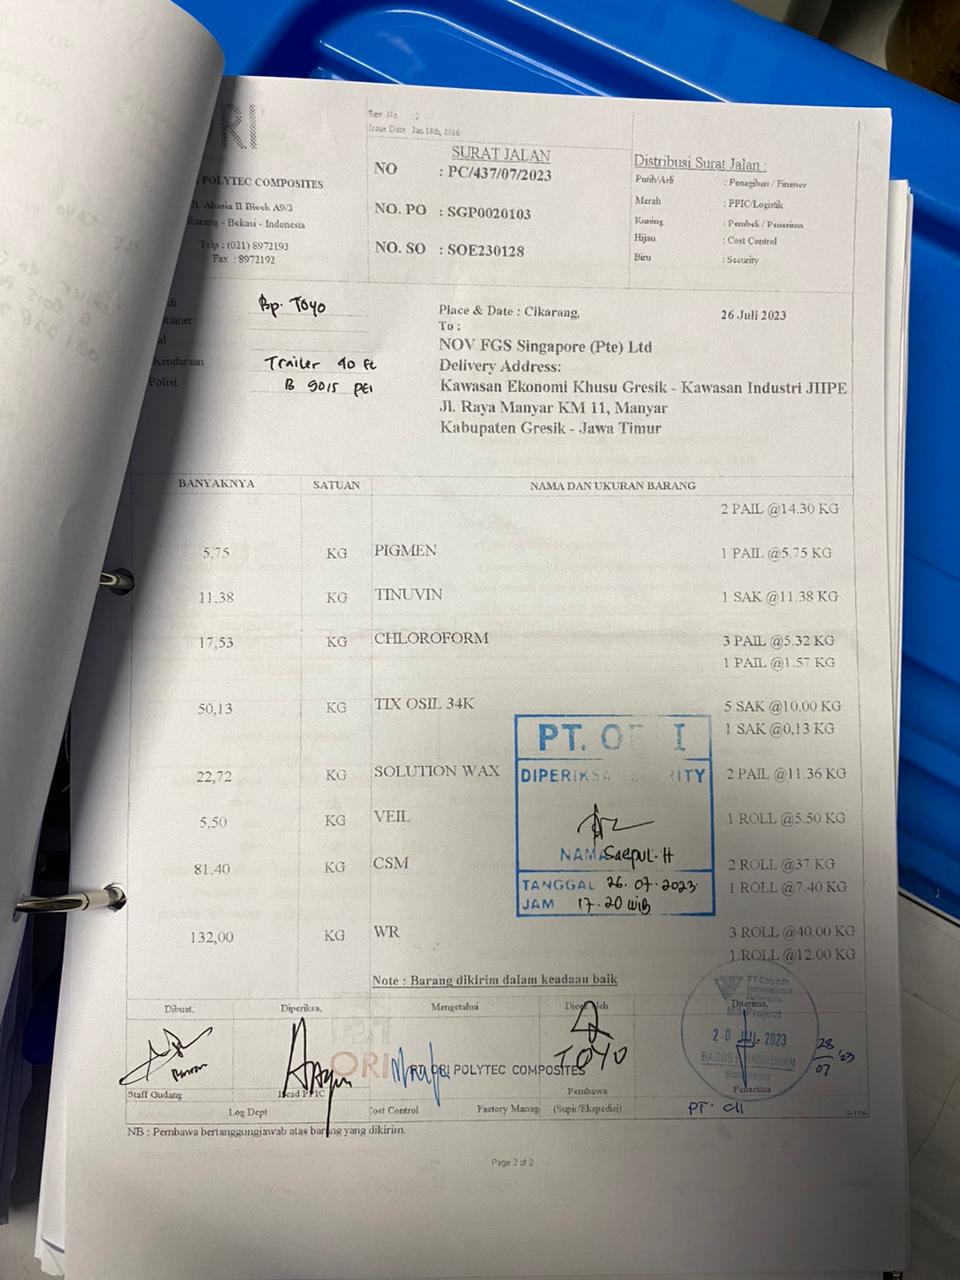 RI
Rev. No. : 2
Issue Date : Jan 18th, 2016
POLYTEC COMPOSITES
Akasia II Block A9/3
karang - Bekasi - Indonesia
Telp : (021) 8972193
Fax : 8972192
SURAT JALAN
NO : PC/437/07/2023
NO. PO : SGP0020103
NO. SO : SOE230128
Distribusi Surat Jalan :
Putih/Asli : Penagihan / Finance
Merah : PPIC/Logistik
Kuning : Pembeli / Penerima
Hijau : Cost Control
Biru : Security
di Bp. TOYO
tainer
Kendaraan Trailer 40 ft
Polisi B 9015 PEI
Place & Date : Cikarang, 26 Juli 2023
To :
NOV FGS Singapore (Pte) Ltd
Delivery Address:
Kawasan Ekonomi Khusu Gresik - Kawasan Industri JIIPE
Jl. Raya Manyar KM 11, Manyar
Kabupaten Gresik - Jawa Timur
BANYAKNYA SATUAN NAMA DAN UKURAN BARANG
2 PAIL @14.30 KG
5,75 KG PIGMEN 1 PAIL @5.75 KG
11,38 KG TINUVIN 1 SAK @11.38 KG
17,53 KG CHLOROFORM 3 PAIL @5.32 KG
1 PAIL @1.57 KG
50,13 KG TIX OSIL 34K 5 SAK @10.00 KG
1 SAK @0,13 KG
22,72 KG SOLUTION WAX 2 PAIL @11.36 KG
5,50 KG VEIL 1 ROLL @5.50 KG
81,40 KG CSM 2 ROLL @37 KG
1 ROLL @7.40 KG
132,00 KG WR 3 ROLL @40.00 KG
1 ROLL @12.00 KG
PT. O I
DIPERIKSA RITY
NAMA Saepul. H
TANGGAL 26. 07. 2023.
JAM 17. 20 WIB
Note : Barang dikirim dalam keadaan baik
Dibuat, Diperiksa, Mengetahui Diterima,
International
Indonesia
Project
2023
28/07 '23
TOYO
ORI PT ORI POLYTEC COMPOSITES
Staff Gudang Head PPIC Pembawa Penerima
Log Dept Cost Control Factory Manag (Supir/Ekspedisi) PT. CII
NB : Pembawa bertanggungjawab atas barang yang dikirim.
Page 2 of 2